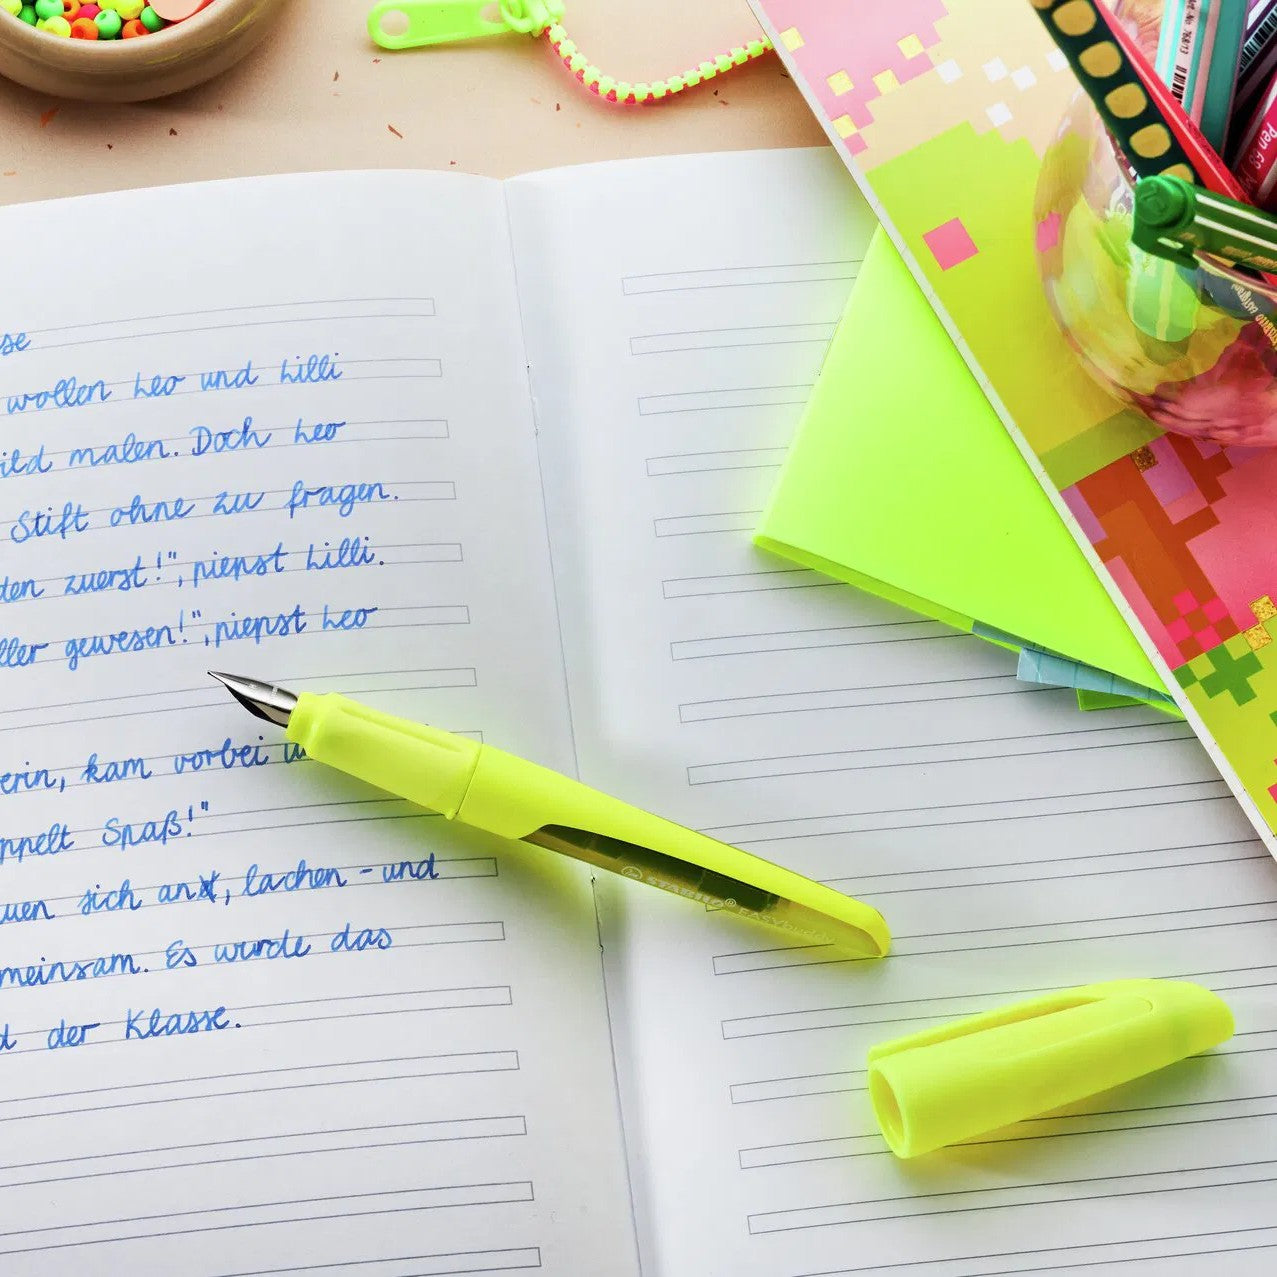 se
wollen Leo und Lilli
ild malen. Doch Leo
Stift ohne zu fragen.
den zuerst!", piepst Lilli.
ller gewesen!", piepst Leo
erin, kam vorbei u
ppelt Spaß!"
uen sich an, lachen - und
meinsam. Es wurde das
d der Klasse.
STABILO® EASYbuddy
Pen 68
STABILO EASYgraph